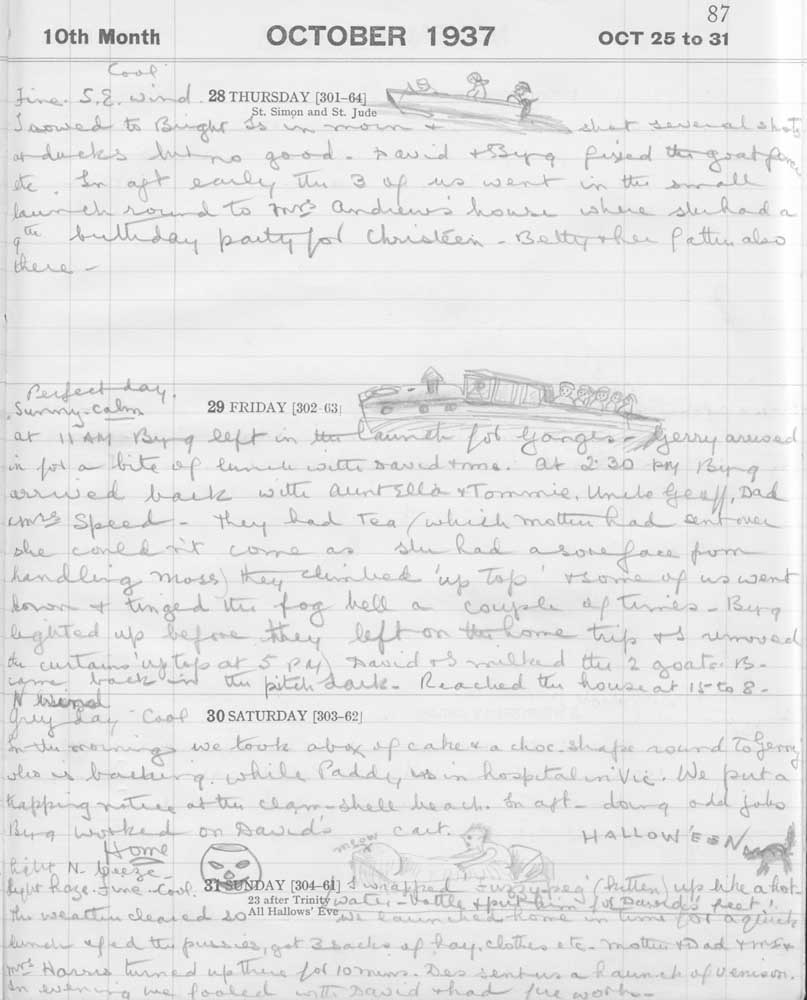 87
10th Month OCTOBER 1937 OCT 25 to 31
Cool
Fine. S.E. wind. 28 THURSDAY [301-64]
St. Simon and St. Jude
I rowed to Bright Is in morn + shot several shots
at ducks but no good. David + Byrg fixed the goat fence
etc. In aft early the 3 of us went in the small
launch round to Mrs Andrew's house where she had a
9th birthday party for Christeen - Betty + her father also
there -
Perfect day.
Sunny-calm 29 FRIDAY [302-63]
at 11 AM Byrg left in the launch for Ganges - Gerry arrived
in for a bite of lunch with David + me. At 2.30 PM Byrg
arrived back with Aunt Ella + Tommie, Uncle Geoff, Dad
+ Mrs Speed - They had Tea (which mother had sent over
she couldn't come as she had a sore face from
handling moss) they climbed 'up top' + some of us went
down + tinged the fog bell a couple of times - Byrg
lighted up before they left on the home trip + I removed
the curtains up top at 5 PM) David + I milked the 2 goats. B-
came back in the pitch dark - Reached the house at 15 to 8 -
N wind
Grey day Cool 30 SATURDAY [303-62]
In the morning we took a box of cake + a choc. shape round To Gerry
who is baching while Paddy is in hospital in Vic. We put a
trapping notice at the clam-shell beach. In aft - doing odd jobs
Byrg worked on David's cart.
HALLOW'EEN
Home
meow
light N. breeze -
light haze. Fine - Cool. 31 SUNDAY [304-61] I wrapped 'Fuzzy-peg' (kitten) up like a hot-
23 after Trinity water-bottle + put him for David's feet!
The weather cleared so All Hallows' Eve we launched home in time for a quick
lunch + fed the pussies, got 3 sacks of hay, clothes etc - Mother + Dad + Mr +
Mrs Harris turned up there for 10 mins. Des sent us a haunch of venison.
In evening we fooled with David + had fire works -